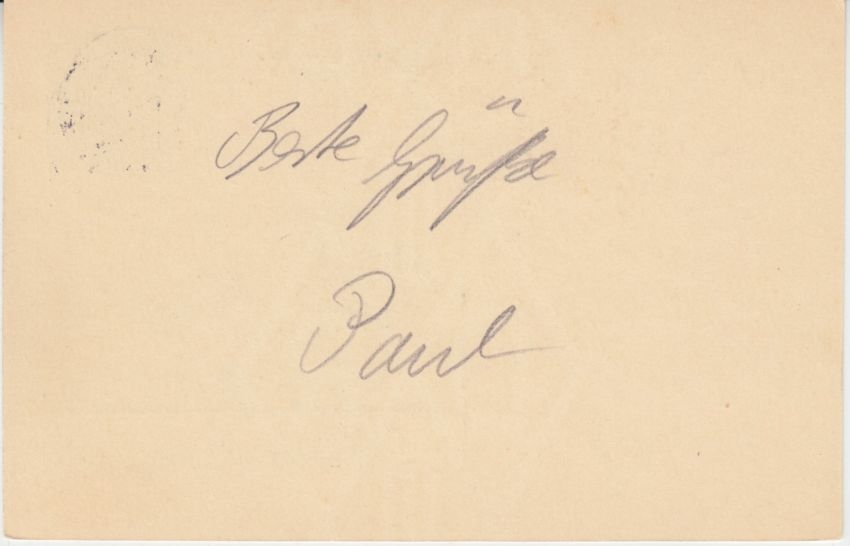 Beste Grüße
Paul